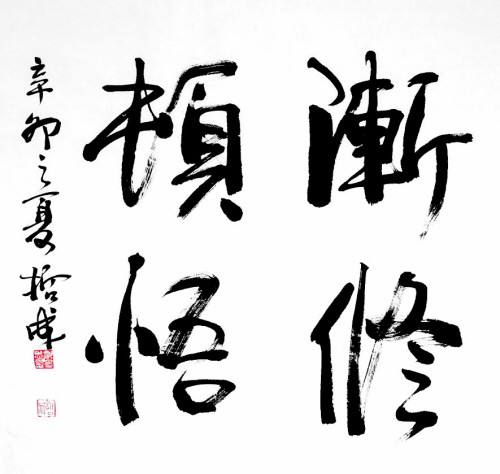 漸修
頓悟
辛卯之夏